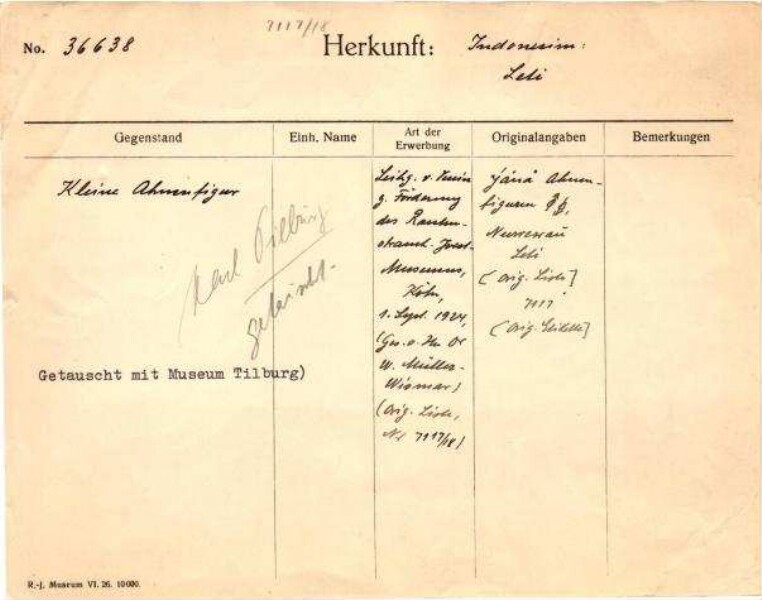 7117/18
No. 36638 Herkunft: Indonesien:
Leti
Gegenstand
Einh. Name
Art der
Erwerbung
Originalangaben
Bemerkungen
Kleine Ahnenfigur
nach Tilburg
getauscht.
Getauscht mit Museum Tilburg)
Leihg. v. Verein
z. Förderung
des Rauten-
strauch-Joest-
Museums,
Köln,
1. Sept. 1924,
(Ges. v. Hn Dr
W. Müller-
Wismar)
(Orig. Liste,
Nr 7117/18)
Ahnen-
figuren
Leti
[Orig. Liste]
7117
[Orig. Etikette]
R.-J. Museum VI. 26. 10000.